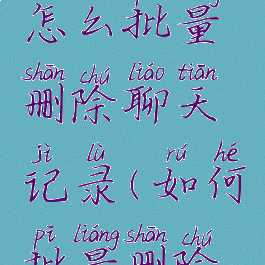 怎么批量
shān chú liáo tiān
删除聊天
jì lù rú hé
记录(如何
pī liáng shān chú
批量删除